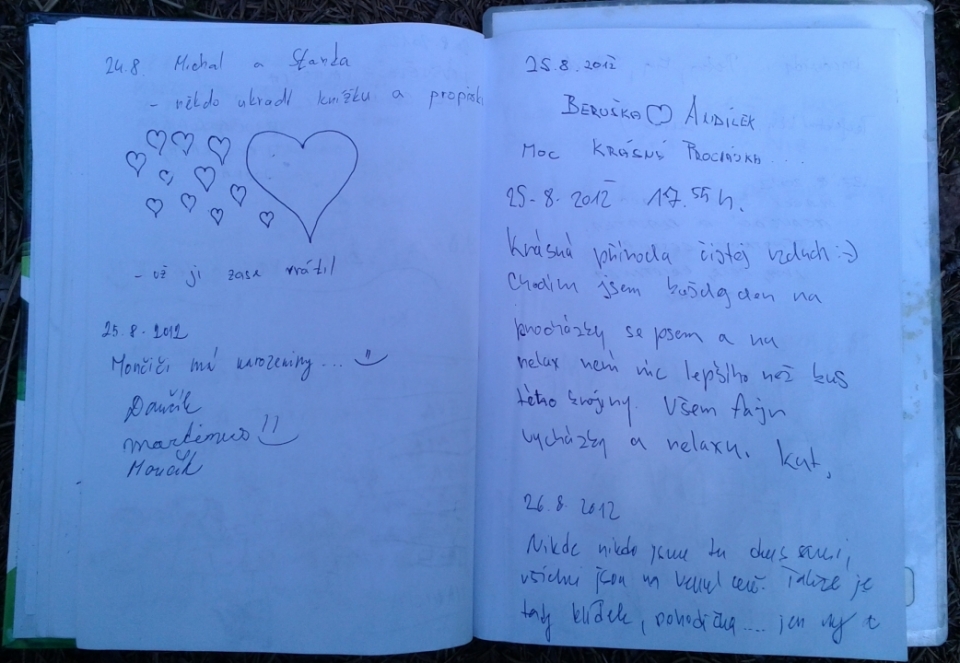 24.8 Michal a Standa
- někdo ukradl knížku a propisk
- už ji zase vrátil
25.8.2012
Mončiči má narozeniny...
Dančik
Martinus !!
Mončik
25.8.2012
BERUŠKA ANDÍLEK
MOC KRÁSNÁ PROCHÁZKA....
25.8.2012 17.55h.
Krásná příroda čistej vzduch :-)
Chodím jsem každej den na
procházky se psem a na
relax není nic lepšího než kus
této krajiny. Všem fajn
vycházky a relaxu.
26.8.2012
Nikde nikdo jsme tu dnes sami,
všichni jsou na. Takže je
tady klídek, pohodička.... jen my a